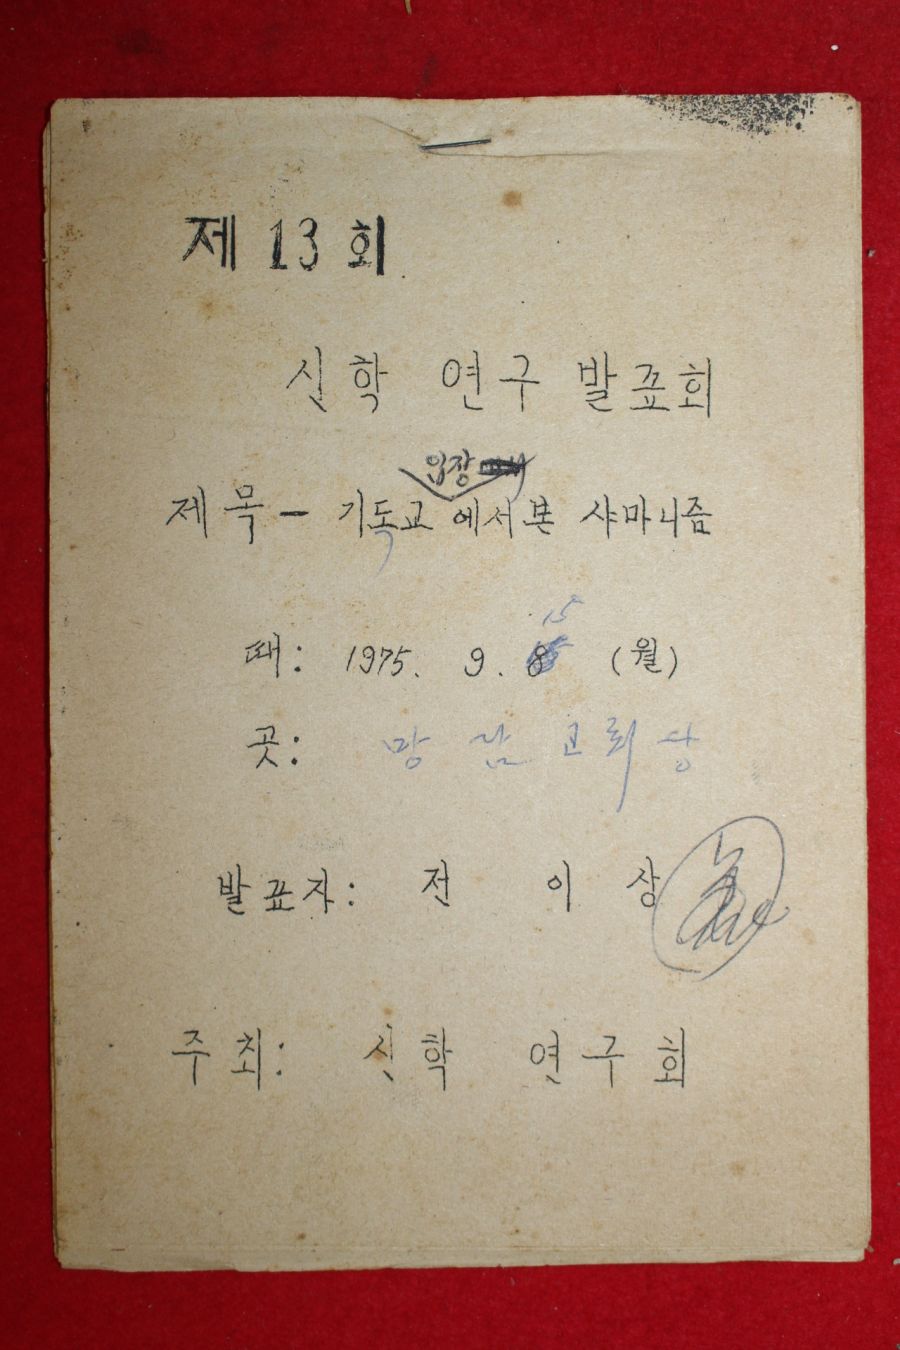 제 13 회
신학 연구 발표회
입장
제목 - 기독교 에서 본 샤마니즘
15
때: 1975. 9. 8 (월)
곳: 망 교회당
발표자: 전 이 상
주최: 신학 연구회